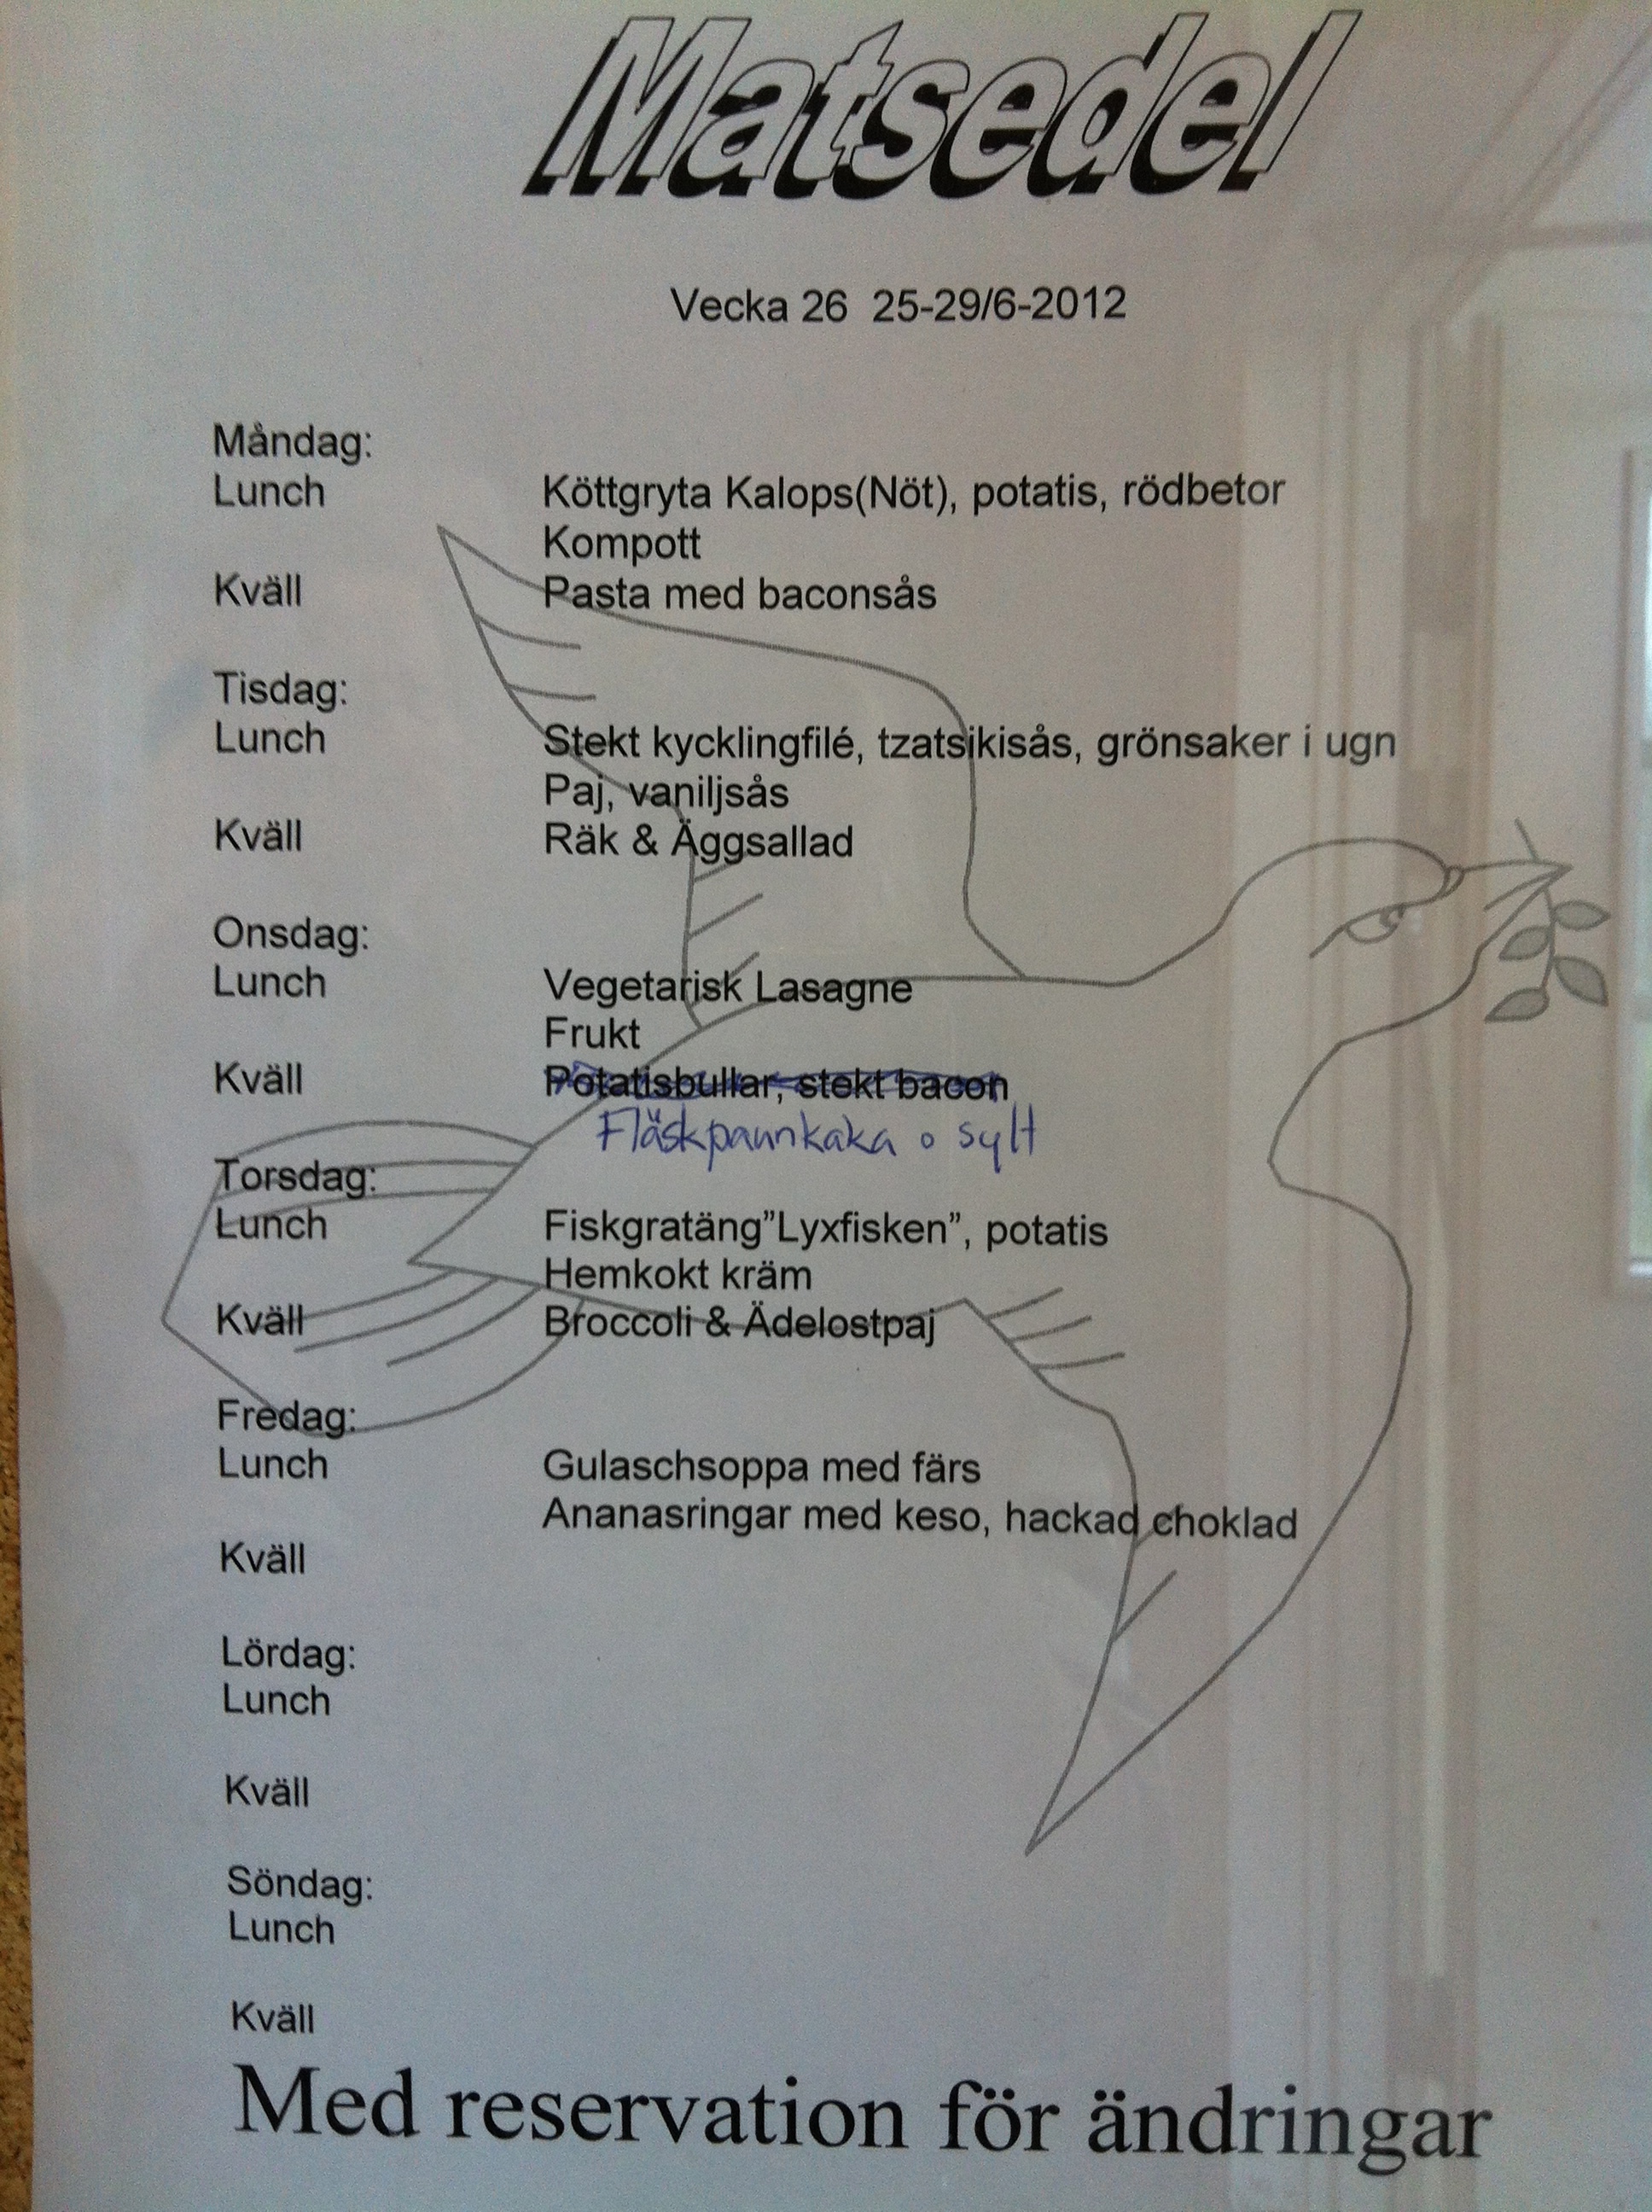 Matsedel
Vecka 26 25-29/6-2012
Måndag:
Lunch Köttgryta Kalops(Nöt), potatis, rödbetor
Kompott
Kväll Pasta med baconsås
Tisdag:
Lunch Stekt kycklingfilé, tzatsikisås, grönsaker i ugn
Paj, vaniljsås
Kväll Räk & Äggsallad
Onsdag:
Lunch Vegetarisk Lasagne
Frukt
Kväll Potatisbullar, stekt bacon
Fläskpannkaka o sylt
Torsdag:
Lunch Fiskgratäng”Lyxfisken”, potatis
Hemkokt kräm
Kväll Broccoli & Ädelostpaj
Fredag:
Lunch Gulaschsoppa med färs
Ananasringar med keso, hackad choklad
Kväll
Lördag:
Lunch
Kväll
Söndag:
Lunch
Kväll
Med reservation för ändringar